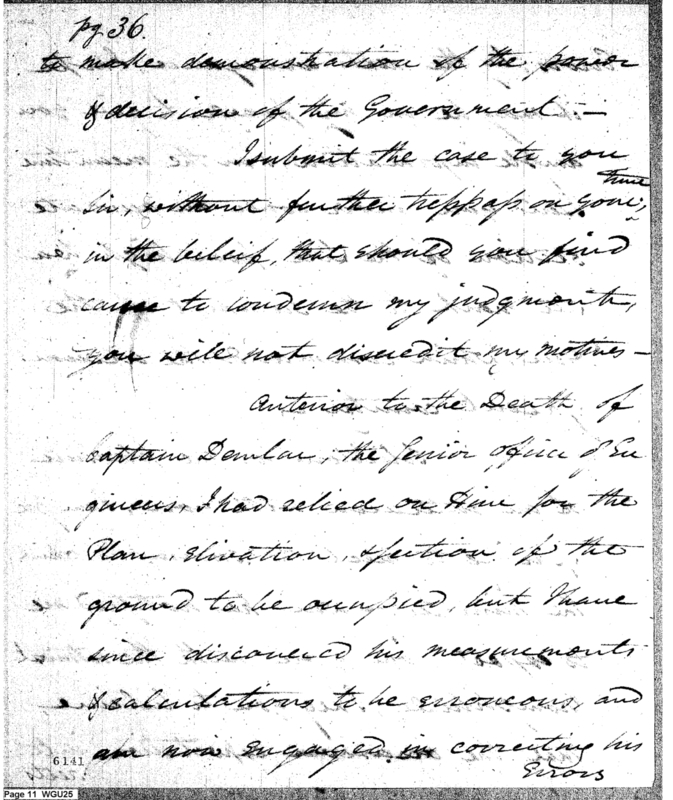 pg 36.
to make demonstration of the power
& decision of the Government. —
I submit the case to you
time
Sir, without further treppass on your,
in the beleif, that should you find
cause to condemn my judgment,
you will not discredit my motives —
Anterior to the Death of
Captain Demlar, the Senior officer of En
gineers, I had relied on Him for the
Plan, elivation, & section of the
ground to be occupied, but I have
since discovered his measurements
& calculations to be erroneous, and
am now engaged in correcting his
Errors
6141
Page 11 WGU25